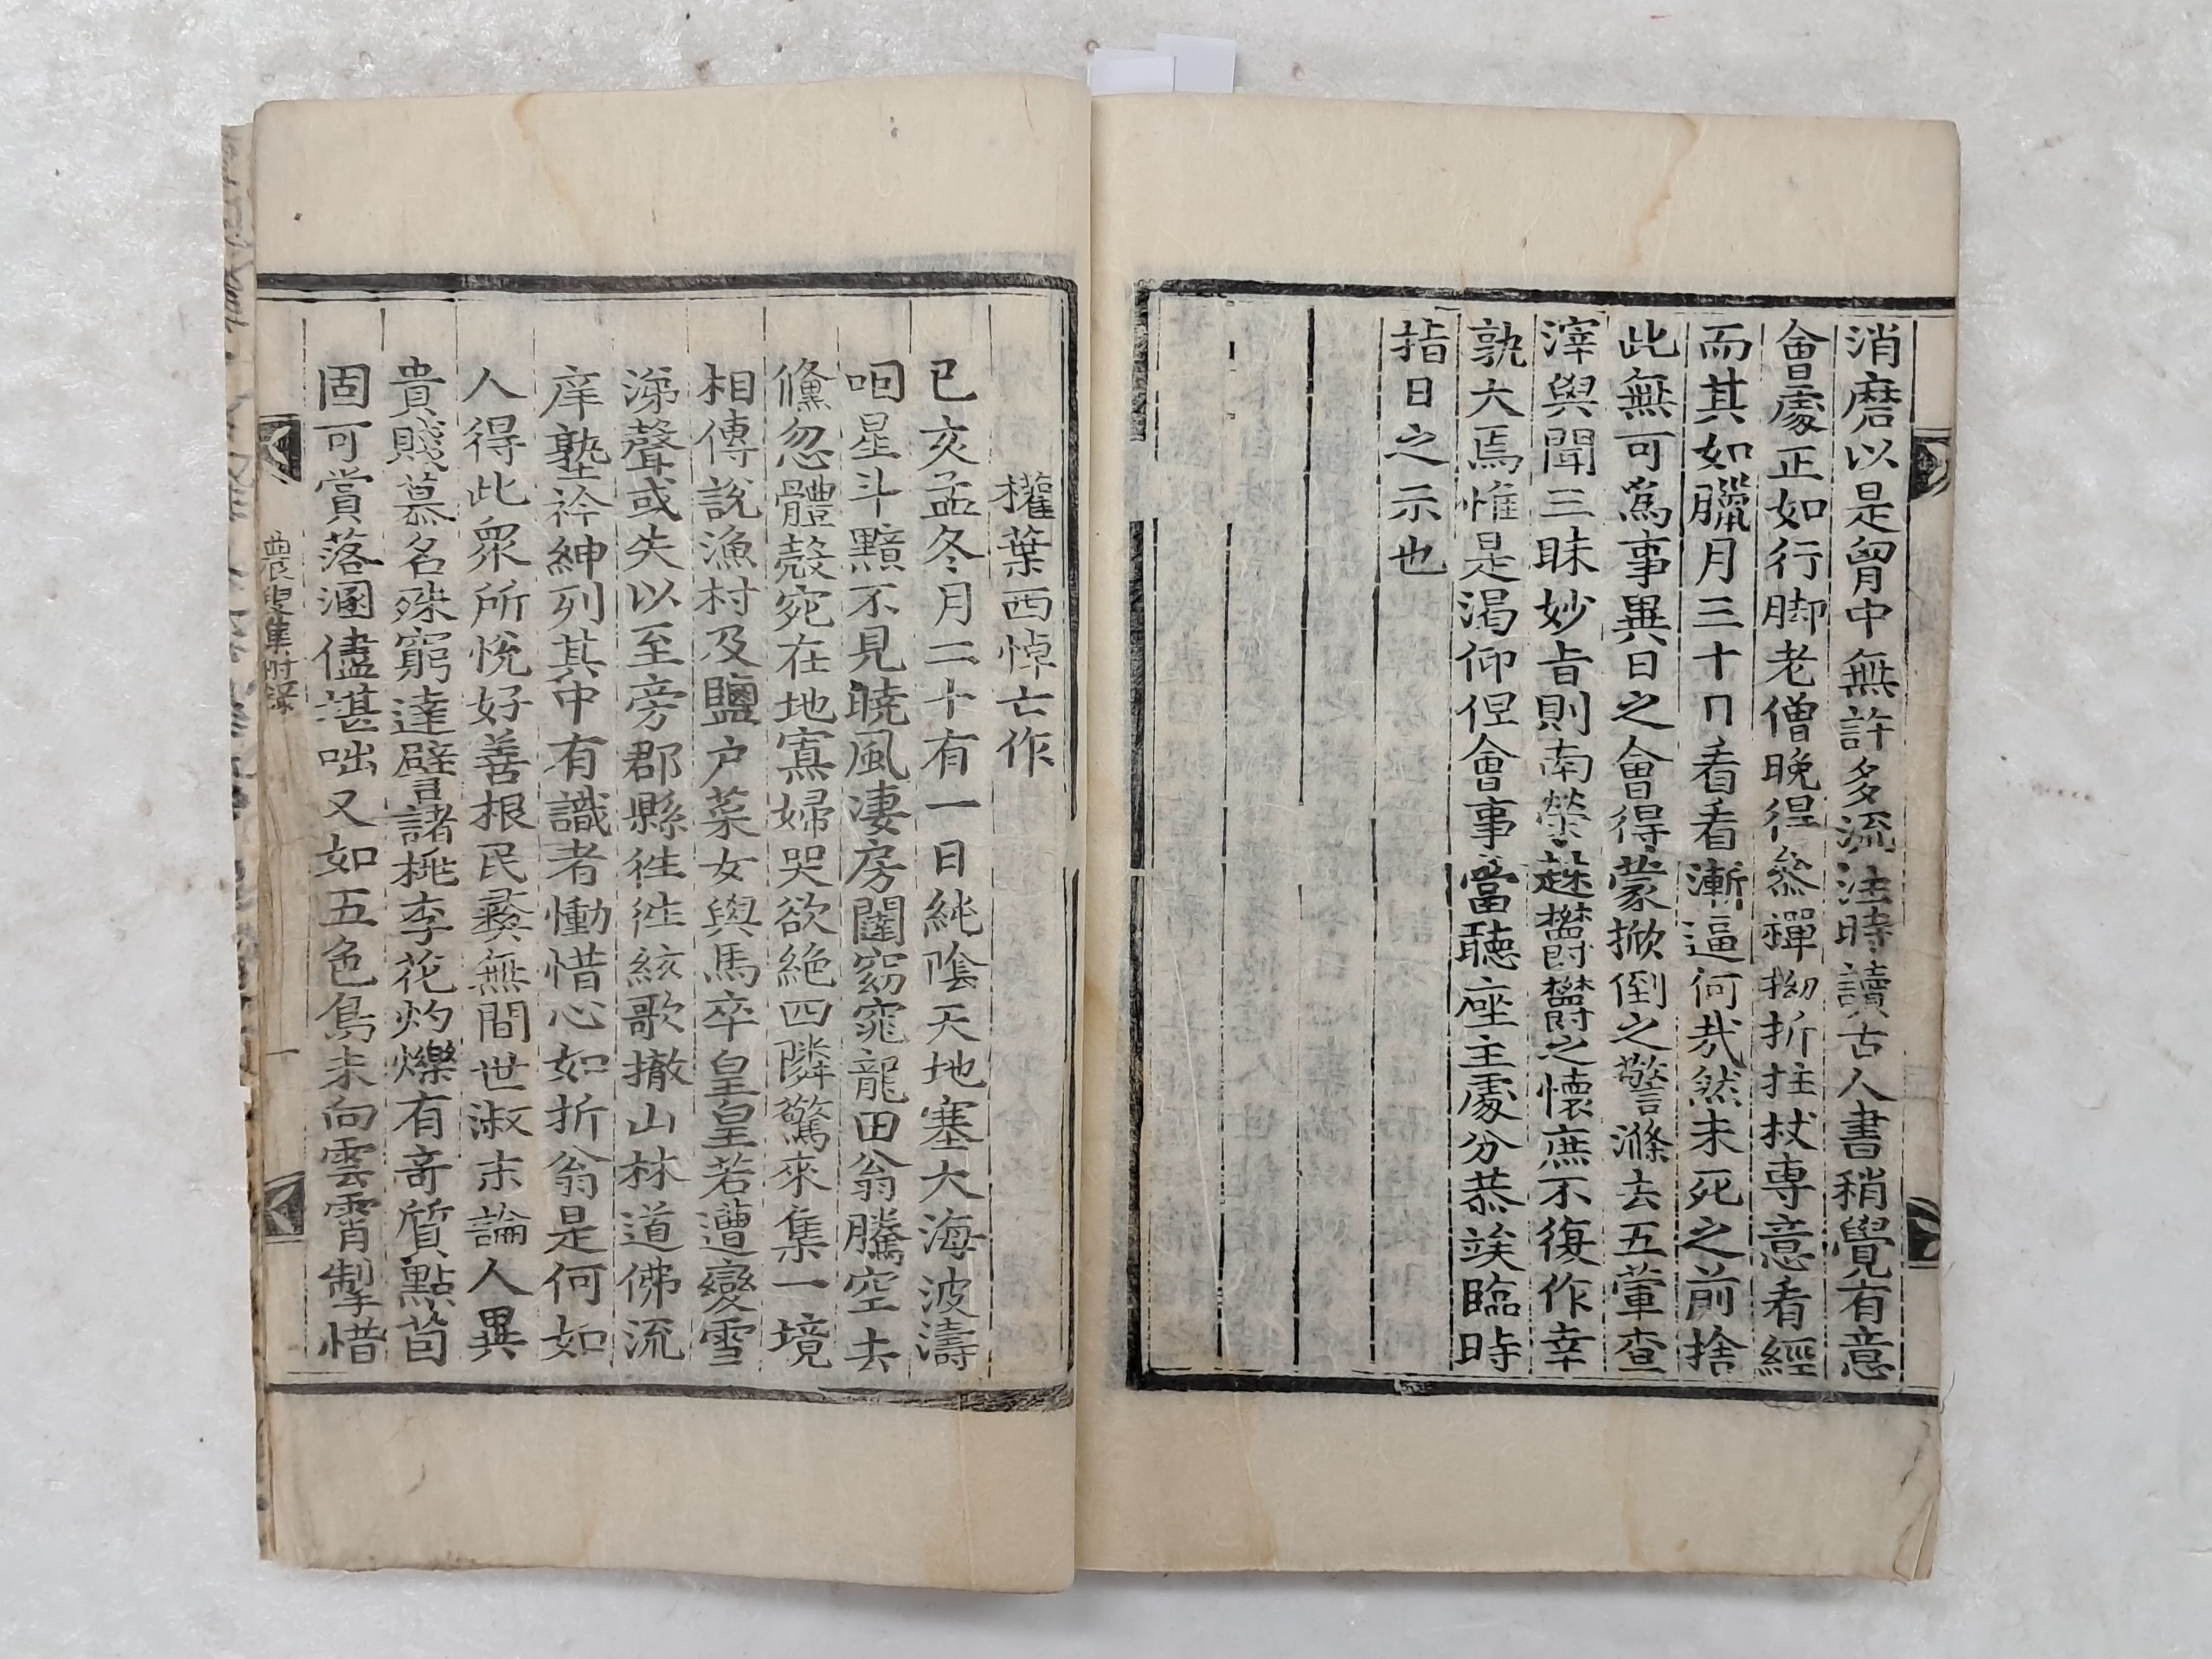 消磨以是胷中無許多流注時讀古人書稍覺有意
會處正如行脚老僧晚得叅禪拗折拄杖專意看經
而其如臘月三十日看看漸逼何哉然未死之前捨
此無可爲事異日之會得蒙掀倒之警滌去五葷查
滓與聞三昧妙旨則南榮趎欝欝之懷庶不復作幸
孰大焉惟是渴仰但會事當聽座主處分恭竢臨時
指日之示也
權葉西悼亡作
已亥孟冬月二十有一日純陰天地塞大海波濤
咽星斗黯不見曉風凄房闥窈窕龍田翁騰空去
儵忽體殼宛在地寡婦哭欲絶四隣驚來集一境
相傳說漁村及鹽户菜女與馬卒皇皇若遭變雪
涕聲或失以至旁郡縣徃徃絃歌撤山林道佛流
庠塾衿紳列其中有識者慟惜心如折翁是何如
人得此衆所悅好善根民彛無間世淑末論人異
貴賤慕名殊窮達譬諸桃李花灼爍有竒質點茵
固可賞落溷儘堪咄又如五色鳥未向雲霄掣惜
農叟集附錄
一